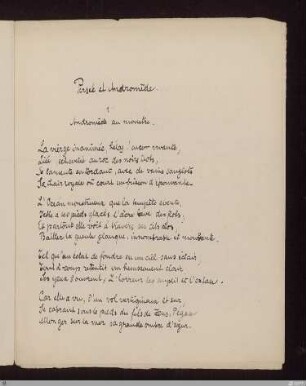 Persée et Andromède.
I
Andromède au monstre.
La vierge Céphéenne, hélas! encor vivante,
Liée, échevelée au roc des noirs îlots,
Se lamente en tordant avec de vains sanglots
Sa chair royale où court un frisson d'épouvante.
L'Océan monstrueux que la tempête évente
Crache à ses pieds glacés l'âcre bave des flots,
Et partout elle voit à travers ses cils clos
Bailler la gueule glauque, innombrable et mouvante.
Tel qu'un éclat de foudre en un ciel sans éclair,
Tout à coup, retentit un hennissement clair.
Ses yeux s'ouvrent. L'horreur les emplit et l'extase.
Car elle a vu, d'un vol vertigineux et sûr,
Se cabrant sous le poids du fils de Zeus, Pégase
Allonger sur la mer sa grande ombre d'azur.